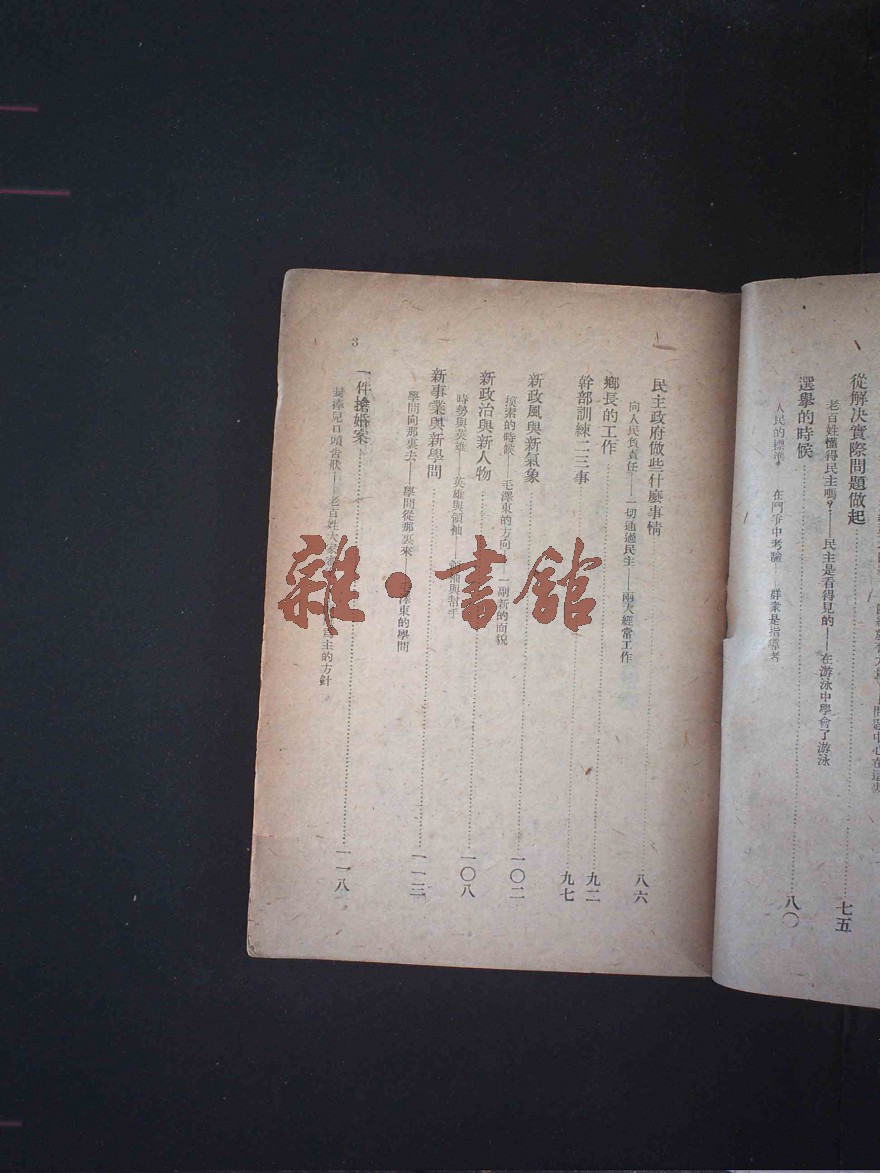 從解決實際問題做起 七五
老百姓懂得民主嗎?——民主是看得見的——在游泳中學會了游泳
選舉的時候 八〇
人民的標準 在鬥爭中考驗——群衆是指導者
民主政府做些什麽事情 八六
向人民負責任——一切通過民主——兩大經常工作
鄉長的工作 九二
幹部訓練二三事 九七
新政風與新氣象 一〇二
摸索的時候——毛澤東的方向——一副新的面貌
新政治與新人物 一〇八
時勢與英雄——英雄與領袖——領袖與幫手
新事業與新學問 一一三
學問向那裏去——學問從那裏來——毛澤東的學問
一件搶婚案 一一八
封捧兒口頭告狀——老百姓大家 主的方針
3
雜·書館